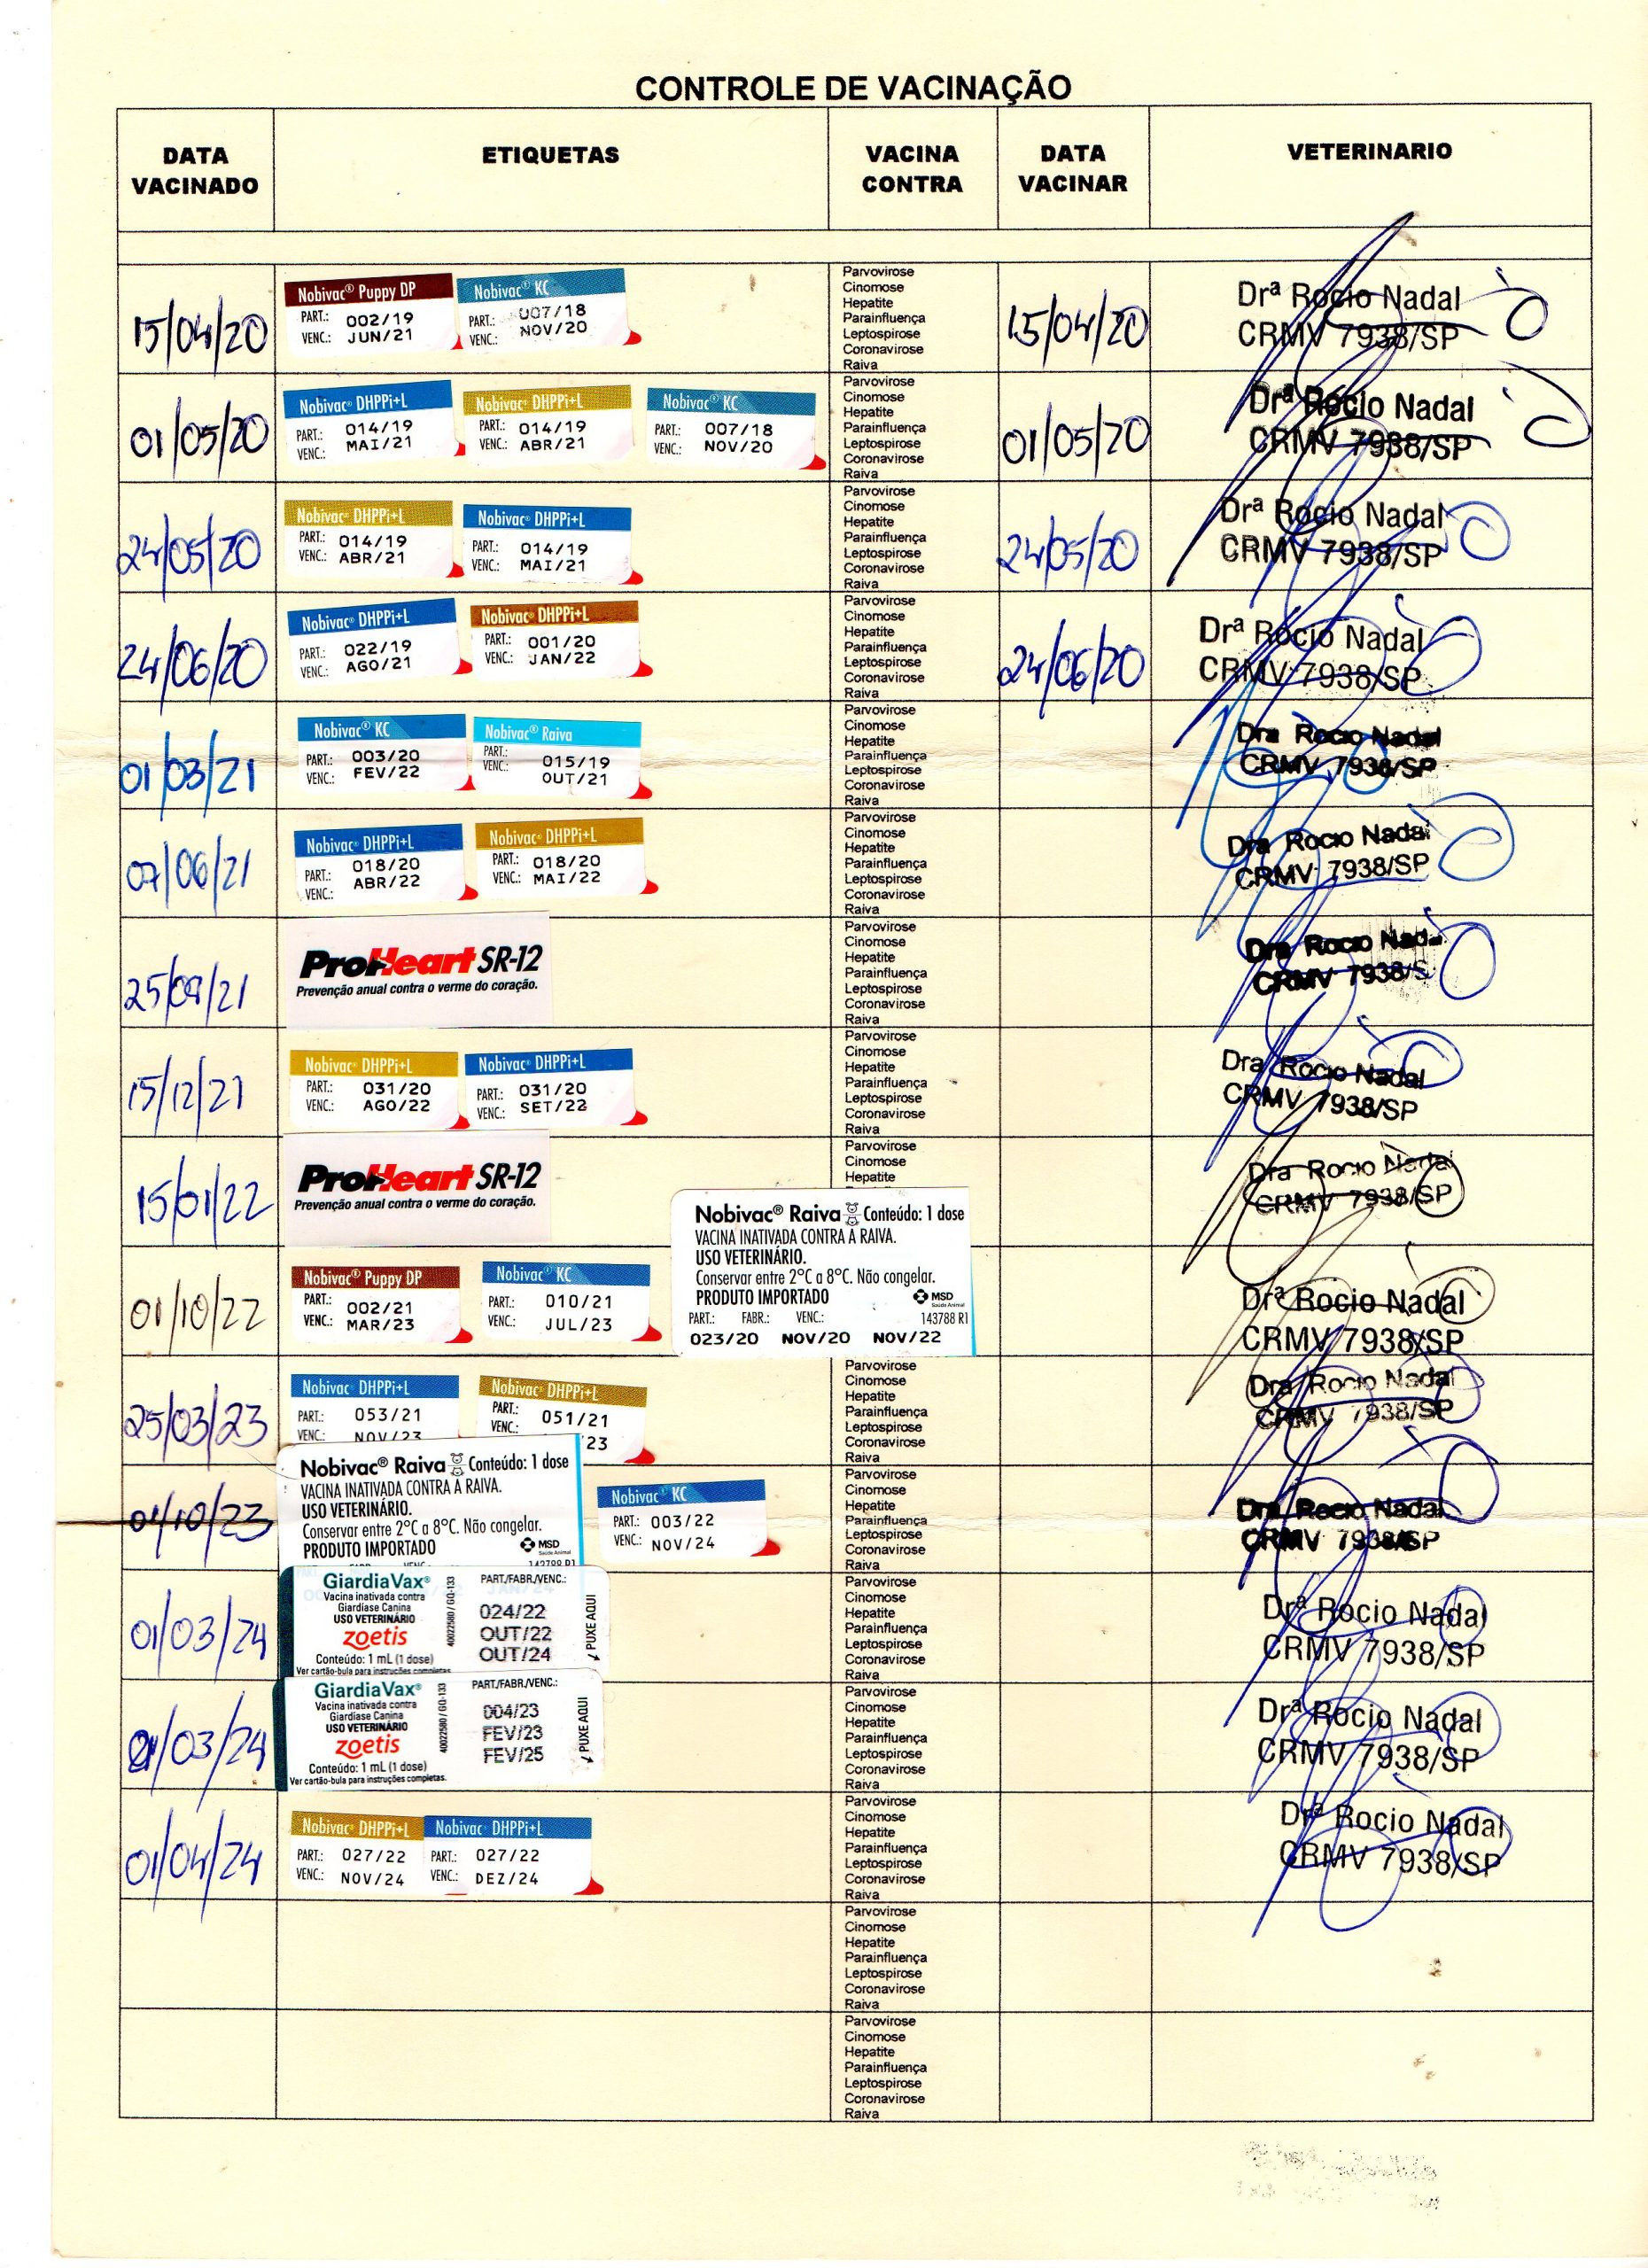 CONTROLE DE VACINAÇÃO
DATA VACINADO
ETIQUETAS
VACINA CONTRA
DATA VACINAR
VETERINARIO
15/04/20
Nobivac® Puppy DP
PART.: 002/19
VENC.: JUN/21
Nobivac® KC
PART.: 007/18
VENC.: NOV/20
Parvovirose
Cinomose
Hepatite
Parainfluença
Leptospirose
Coronavirose
Raiva
15/04/20
Drª Rocio Nadal
CRMV 7938/SP
01/05/20
Nobivac® DHPPi+L
PART.: 014/19
VENC.: MAI/21
Nobivac® DHPPi+L
PART.: 014/19
VENC.: ABR/21
Nobivac® KC
PART.: 007/18
VENC.: NOV/20
Parvovirose
Cinomose
Hepatite
Parainfluença
Leptospirose
Coronavirose
Raiva
01/05/20
Drª Rocio Nadal
CRMV 7938/SP
24/05/20
Nobivac® DHPPi+L
PART.: 014/19
VENC.: ABR/21
Nobivac® DHPPi+L
PART.: 014/19
VENC.: MAI/21
Parvovirose
Cinomose
Hepatite
Parainfluença
Leptospirose
Coronavirose
Raiva
24/05/20
Drª Rocio Nadal
CRMV 7938/SP
24/06/20
Nobivac® DHPPi+L
PART.: 022/19
VENC.: AGO/21
Nobivac® DHPPi+L
PART.: 001/20
VENC.: JAN/22
Parvovirose
Cinomose
Hepatite
Parainfluença
Leptospirose
Coronavirose
Raiva
24/06/20
Drª Rocio Nadal
CRMV 7938/SP
01/03/21
Nobivac® KC
PART.: 003/20
VENC.: FEV/22
Nobivac® Raiva
PART.: 015/19
VENC.: OUT/21
Parvovirose
Cinomose
Hepatite
Parainfluença
Leptospirose
Coronavirose
Raiva
Dra Rocio Nadal
CRMV 7938/SP
07/06/21
Nobivac® DHPPi+L
PART.: 018/20
VENC.: ABR/22
Nobivac® DHPPi+L
PART.: 018/20
VENC.: MAI/22
Parvovirose
Cinomose
Hepatite
Parainfluença
Leptospirose
Coronavirose
Raiva
Dra Rocio Nadal
CRMV 7938/SP
25/09/21
ProHeart SR-12
Prevenção anual contra o verme do coração.
Parvovirose
Cinomose
Hepatite
Parainfluença
Leptospirose
Coronavirose
Raiva
Dra Rocio Nad
CRMV 7938/S
15/12/21
Nobivac® DHPPi+L
PART.: 031/20
VENC.: AGO/22
Nobivac® DHPPi+L
PART.: 031/20
VENC.: SET/22
Parvovirose
Cinomose
Hepatite
Parainfluença
Leptospirose
Coronavirose
Raiva
Dra Rocio Nadal
CRMV 7938/SP
15/01/22
ProHeart SR-12
Prevenção anual contra o verme do coração.
Parvovirose
Cinomose
Hepatite
Dra Rocio Nadal
CRMV 7938/SP
01/10/22
Nobivac® Puppy DP
PART.: 002/21
VENC.: MAR/23
Nobivac® KC
PART.: 010/21
VENC.: JUL/23
Nobivac® Raiva Conteúdo: 1 dose
VACINA INATIVADA CONTRA A RAIVA.
USO VETERINÁRIO.
Conservar entre 2°C a 8°C. Não congelar.
PRODUTO IMPORTADO MSD
Saúde Animal
PART.: FABR.: VENC.: 143788 R1
023/20 NOV/20 NOV/22
Drª Rocio Nadal
CRMV 7938/SP
25/03/23
Nobivac® DHPPi+L
PART.: 053/21
VENC.: NOV/23
Nobivac® DHPPi+L
PART.: 051/21
VENC.: /23
Parvovirose
Cinomose
Hepatite
Parainfluença
Leptospirose
Coronavirose
Raiva
Dra Rocio Nadal
CRMV 7938/SP
01/10/23
Nobivac® Raiva Conteúdo: 1 dose
VACINA INATIVADA CONTRA A RAIVA.
USO VETERINÁRIO.
Conservar entre 2°C a 8°C. Não congelar.
PRODUTO IMPORTADO MSD
Saúde Animal
Nobivac® KC
PART.: 003/22
VENC.: NOV/24
Parvovirose
Cinomose
Hepatite
Parainfluença
Leptospirose
Coronavirose
Raiva
Dra Rocio Nadal
CRMV 7938/SP
01/03/24
GiardiaVax®
Vacina inativada contra
Giardíase Canina
USO VETERINÁRIO
zoetis
Conteúdo: 1 mL (1 dose)
Ver cartão-bula para instruções completas
40022580/GQ-133
PART./FABR./VENC.:
024/22
OUT/22
OUT/24
PUXE AQUI
Parvovirose
Cinomose
Hepatite
Parainfluença
Leptospirose
Coronavirose
Raiva
Drª Rocio Nadal
CRMV 7938/SP
/03/24
GiardiaVax®
Vacina inativada contra
Giardíase Canina
USO VETERINÁRIO
zoetis
Conteúdo: 1 mL (1 dose)
Ver cartão-bula para instruções completas.
40022580/GQ-133
PART./FABR./VENC.:
004/23
FEV/23
FEV/25
PUXE AQUI
Parvovirose
Cinomose
Hepatite
Parainfluença
Leptospirose
Coronavirose
Raiva
Drª Rocio Nadal
CRMV 7938/SP
01/04/24
Nobivac® DHPPi+L
PART.: 027/22
VENC.: NOV/24
Nobivac® DHPPi+L
PART.: 027/22
VENC.: DEZ/24
Parvovirose
Cinomose
Hepatite
Parainfluença
Leptospirose
Coronavirose
Raiva
Drª Rocio Nadal
CRMV 7938/SP
Parvovirose
Cinomose
Hepatite
Parainfluença
Leptospirose
Coronavirose
Raiva
Parvovirose
Cinomose
Hepatite
Parainfluença
Leptospirose
Coronavirose
Raiva